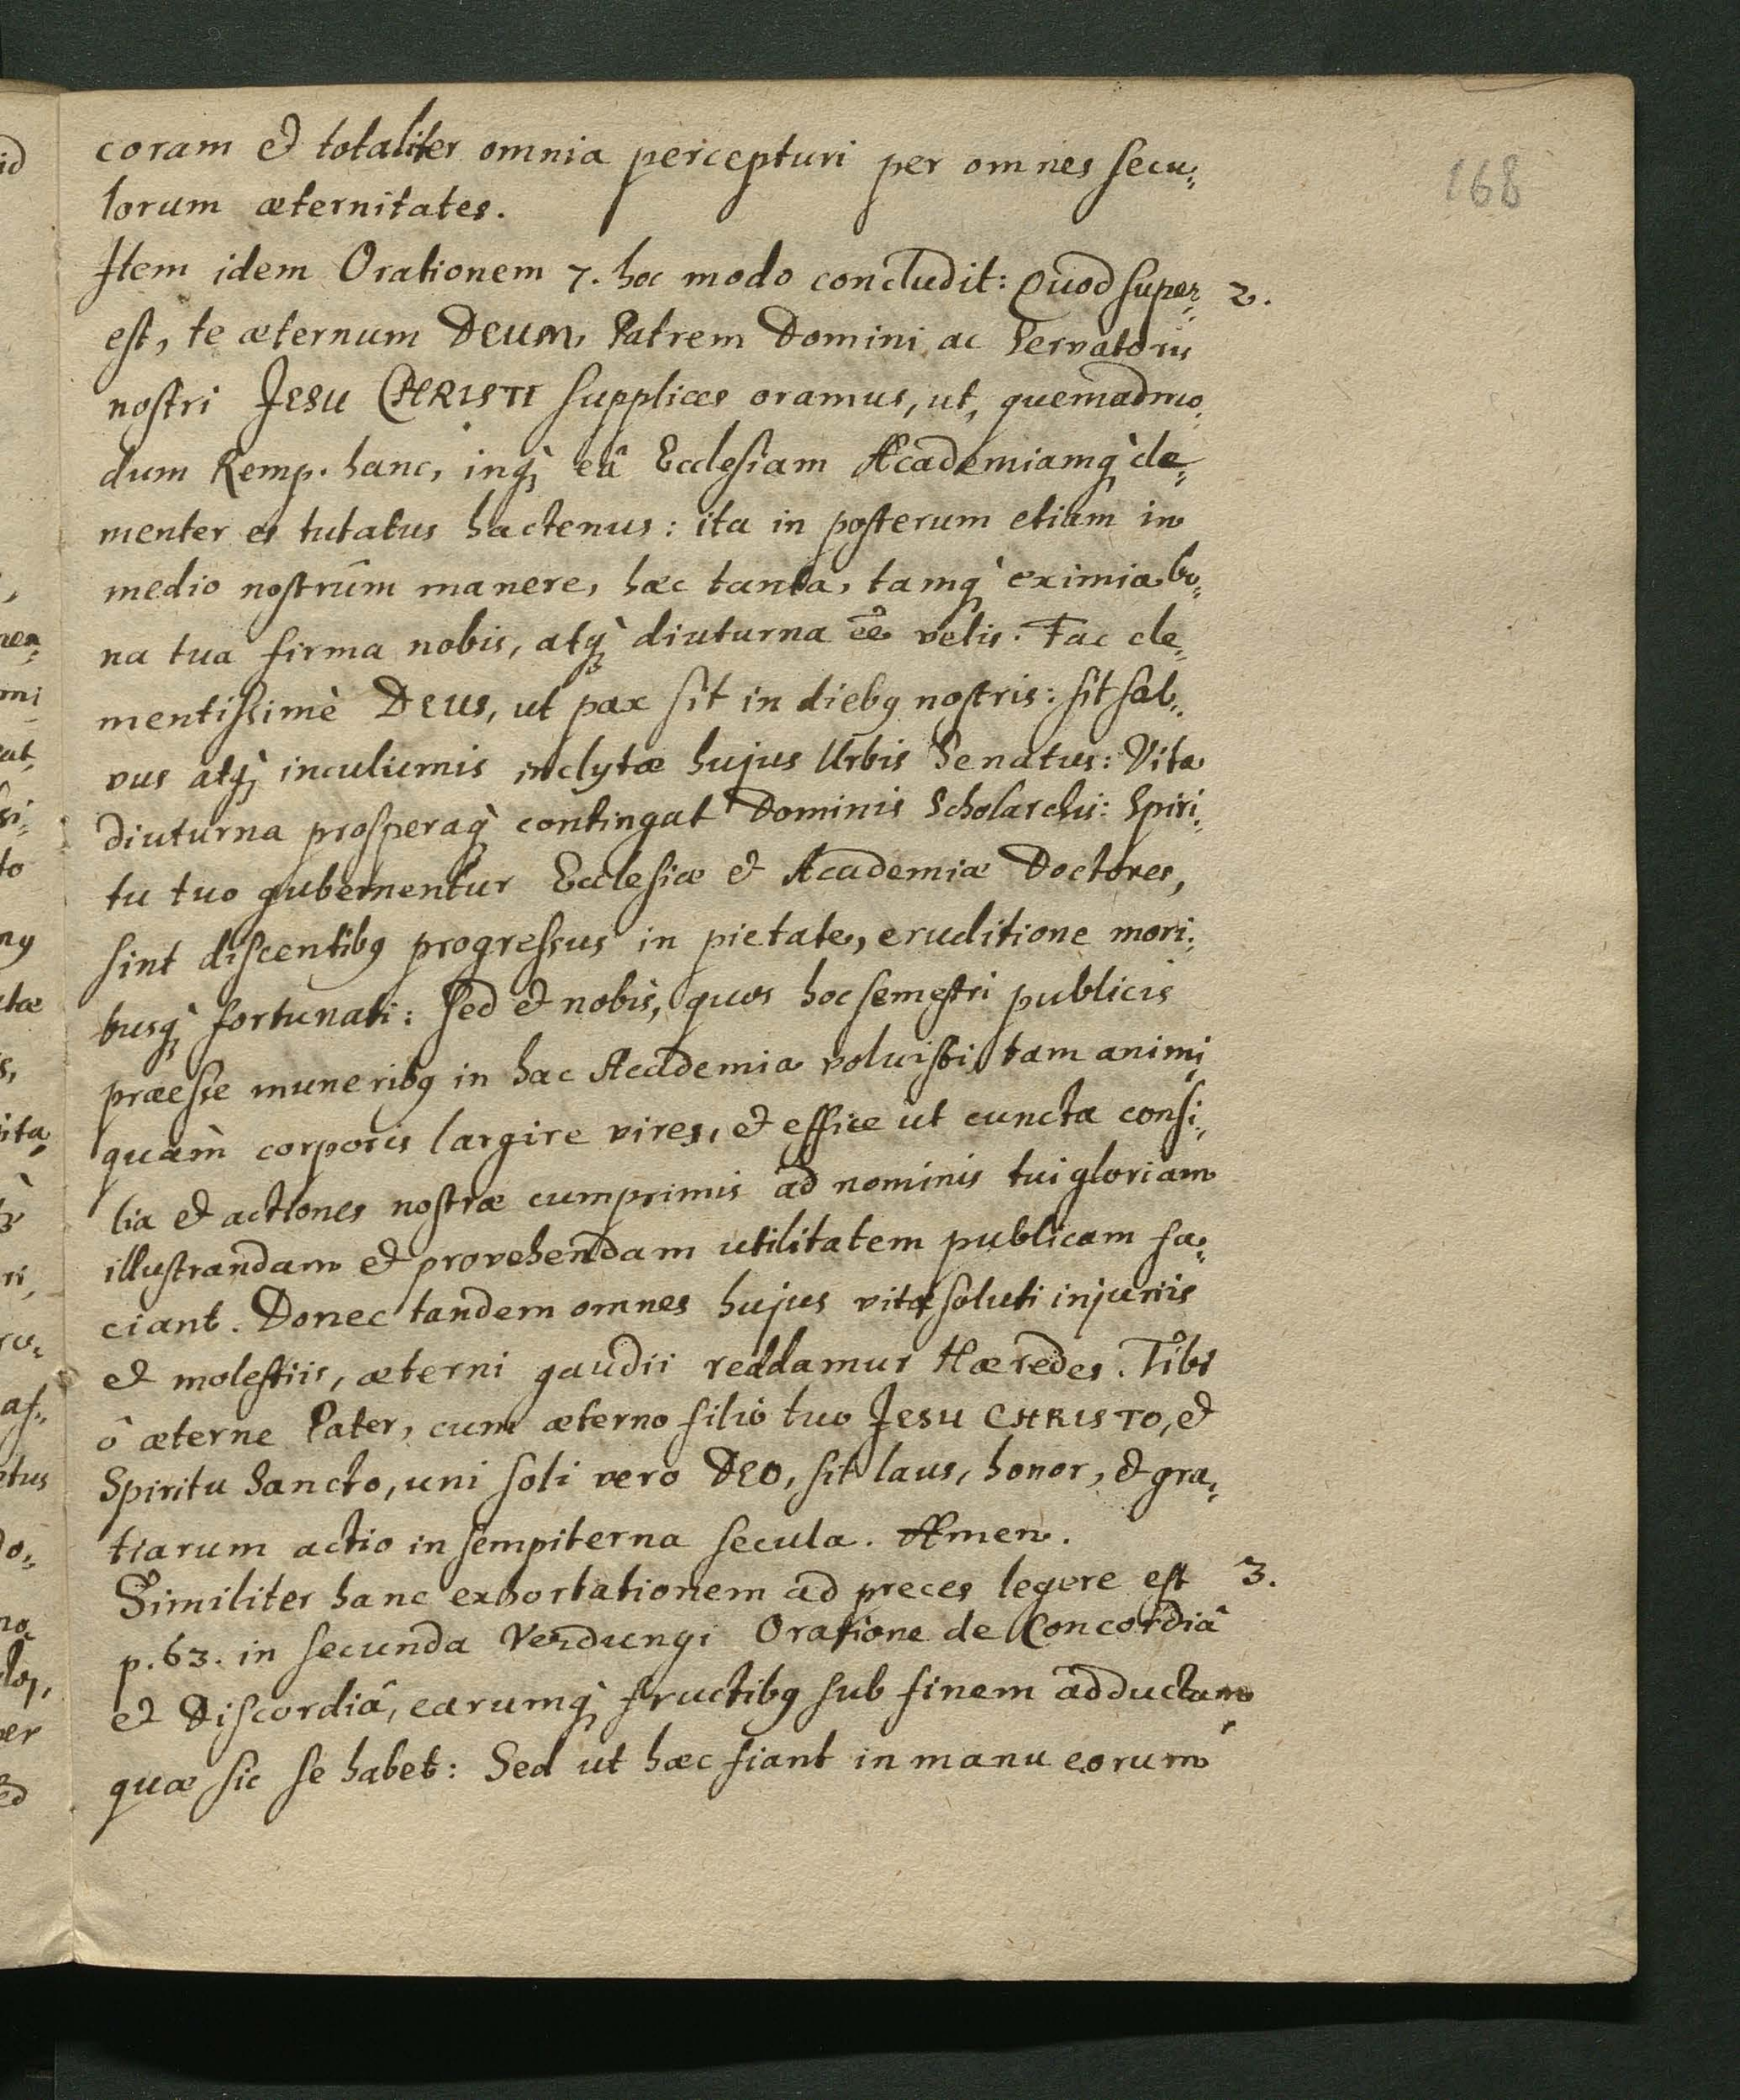 168
coram et totaliter omnia percepturi per omnes secu-
lorum æternitates.
Item idem Orationem 7. hoc modo concludit: Quod super- 2.
est, te æternum DEUM, Patrem Domini ac Servatoris
nostri JESU CHRISTI supplices oramus, ut, quemadmo-
dum Remp. hanc, inq́; eâ Ecclesiam Academiamq́; cle-
menter es tutatus hactenus: ita in posterum etiam in
medio nostrûm manere, hæc tanta, tamq́; eximia bo-
na tua firma nobis, atq́; diuturna ee͂ velis. Fac cle-
mentissimè DEUS, ut pax sit in dieb9 nostris: sit sal-
vus atq́; incolumis inclytæ hujus Urbis Senatus: Vita
diuturna prosperaq́; contingat Dominis Scholarchis: Spiri-
tu tuo gubernentur Ecclesiæ et Academiæ Doctores,
sint discentib9 progressus in pietate, eruditione mori-
busq́; fortunati: Sed et nobis, quos hoc semestri publicis
præesse munerib9 in hac Academia voluisti, tam animi
quàm corporis largire vires, et effice ut cuncta consi-
lia et actiones nostræ cumprimis ad nominis tui gloriam
illustrandam et provehendam utilitatem publicam fa-
ciant. Donec tandem omnes hujus vitæ soluti injuriis
et molestiis, æterni gaudii reddamur Hæredes. Tibi
ô æterne Pater, cum æterno filio tuo JESU CHRISTO, et
Spiritu Sancto, uni soli vero DEO, sit laus, honor, et gra-
tiarum actio in sempiterna secula. Amen.
Similiter hanc exhortationem ad preces legere est 3.
p. 63. in secunda Verdungi Oratione de Concordiâ
et Discordiâ, earumq́; fructib9 sub finem adductam,
quæ sic se habet: Sed ut hæc fiant in manu eorum